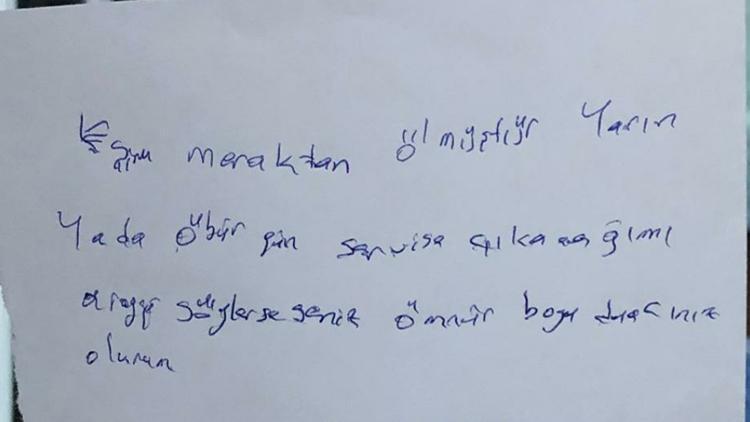 Eşim meraktan ölmüştür Yarın
Yada öbür gün servise çıkacağımı
söylerseseniz ömnür boyu duacınız
olurum